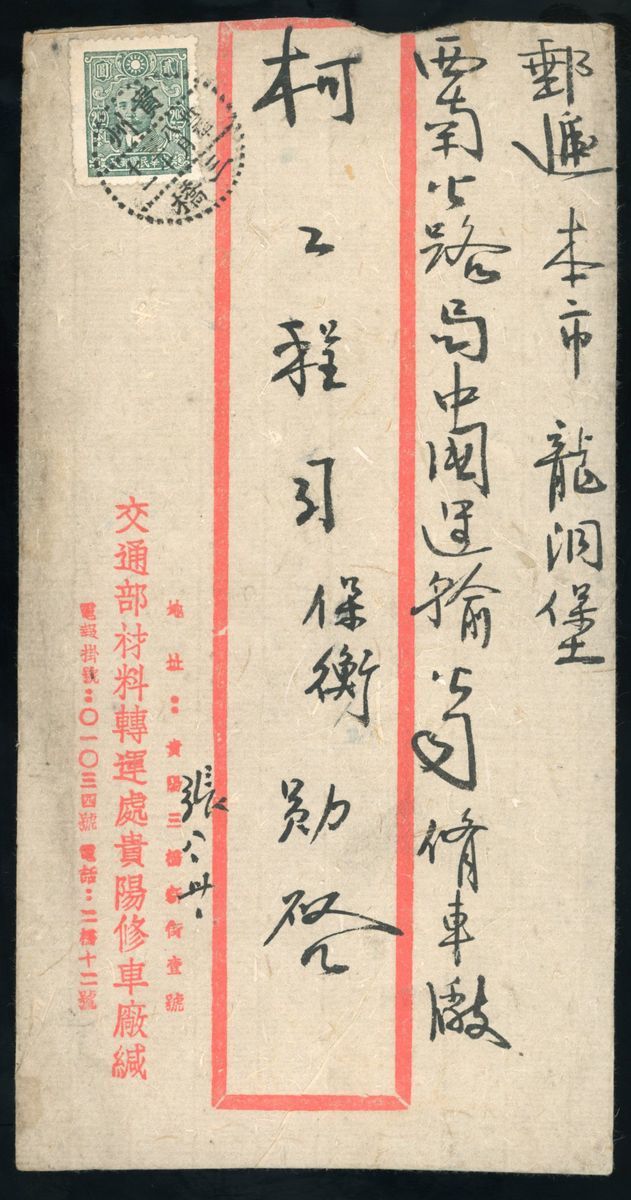 郵遞本市龍洞堡
西南公路局中國運輸公司修車廠
柯工程司保衡勛啓
張
地址：貴陽三橋新街壹號
交通部材料轉運處貴陽修車廠緘
電報掛號：〇一〇三四號 電話：二橋十二號
貳圓
三橋